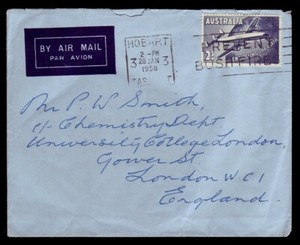 HOBART
2 - PM
28 JAN
1958
TAS
3 3
AUSTRALIA
PREVENT
BUSHFIRES
2/-
BY AIR MAIL
PAR AVION
Mr P. W. Smith,
c/- Chemistry Dept
University College London,
Gower St
London W.C.1
England.